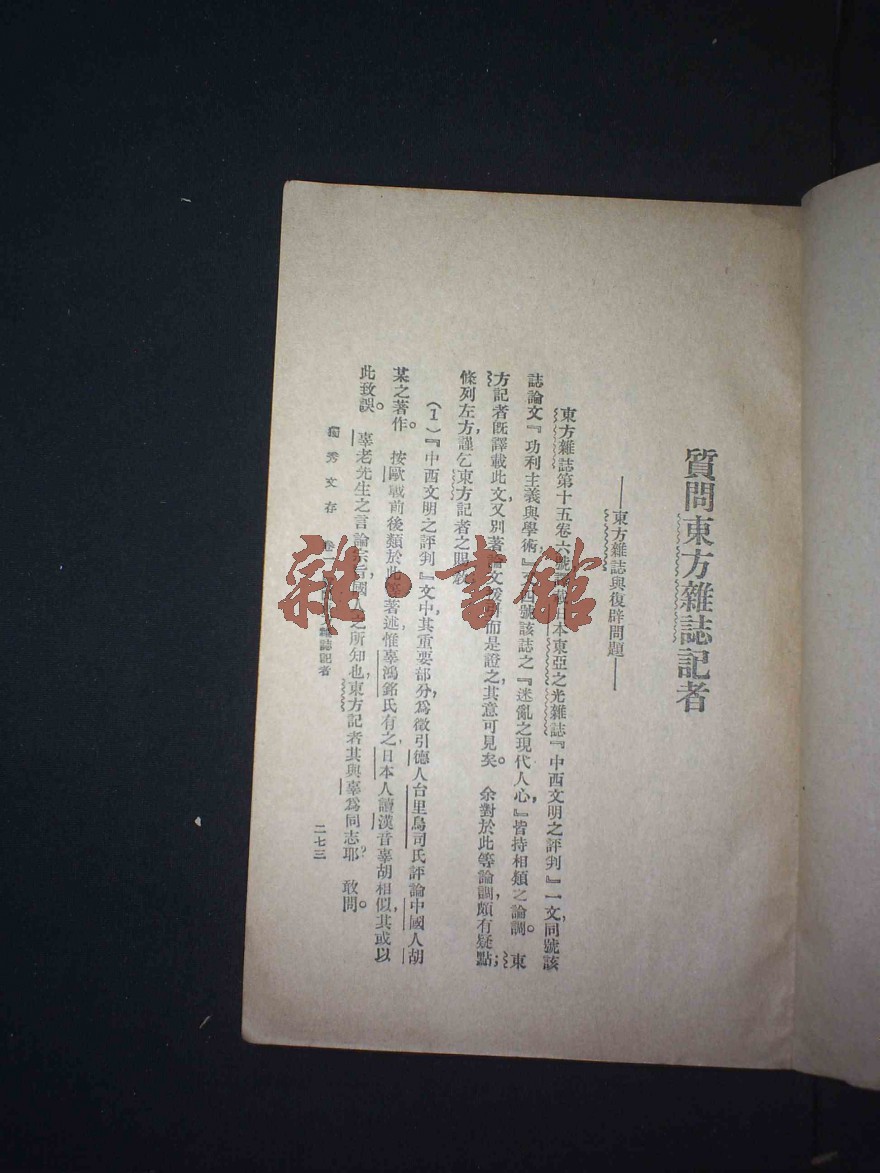 質問東方雜誌記者
——東方雜誌與復辟問題——
東方雜誌第十五卷六號譯載日本東亞之光雜誌『中西文明之評判』一文,同號該
誌論文『功利主義與學術,』又四號該誌之『迷亂之現代人心,』皆持相類之論調。東
方記者既譯載此文,又別著論文援而是證之,其意可見矣。余對於此等論調,頗有疑點;
條列左方,謹乞東方記者之賜
(1)『中西文明之評判』文中,其重要部分,爲徵引德人台里烏司氏評論中國人胡
某之著作。按歐戰前後類於此著述,惟辜鴻銘氏有之,日本人讀漢音辜胡相似,其或以
此致誤。辜老先生之言論宗旨,國人之所知也,東方記者其與辜爲同志耶?敢問。
獨秀文存 卷一 雜誌記者
二七三
雜·書館